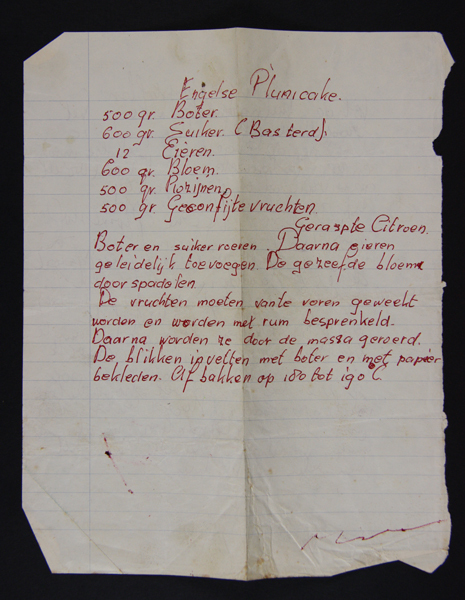 Engelse Plumcake.
500 gr. Boter.
600 gr. Suiker. (Basterd).
12 Eieren.
600 gr. Bloem.
500 gr. Rozijnen,
500 gr. Geconfijte vruchten.
Geraspte Citroen.
Boter en suiker roeren. Daarna eieren
geleidelijk toevoegen. De gezeefde bloem
doorspadelen.
De vruchten moeten, van te voren geweekt
worden en worden met rum besprenkeld.
Daarna worden ze door de massa geroerd.
De blikken invetten met boter en met papier
bekleden. Afbakken op 180 tot 190°C.